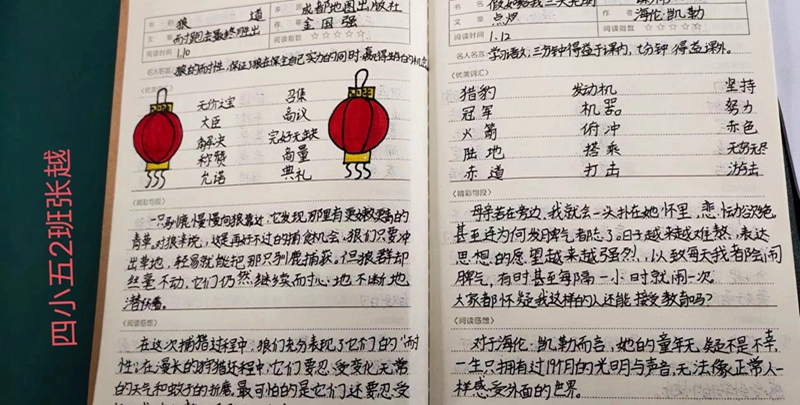 四小五2班张越
书 名 狼 道
成都地图出版社
文 章
金国强
阅读时间 1.10
阅读指数 ☆☆☆☆☆
名人名言:
〈优美词汇〉
无价之宝 召集
大臣 商议
解决 完好无缺
称赞 商量
允诺 典礼
〈精彩句段〉
一只驯鹿慢慢向狼靠近,它发现那里有更嫩更高的
青草。对狼来说,这是再好不过的捕食机会。狼们只要冲
出草地,轻易就能把那只驯鹿捕获。但狼群却
丝毫不动,它们仍然继续耐心地不断地
潜伏着。
〈阅读感想〉
在这次捕猎过程中,狼们充分表现了它们的"耐
性",在漫长的狩猎还程中,它们要忍受变化无常
的天气和蚊子的折磨。最可怕的是它们还要忍受
假如给我三天光明
文 章 点炉
海伦·凯勒
阅读时间 1.12
阅读指数 ☆☆☆☆☆
名人名言: 学习语文,三分钟得益于课内,七分钟得益课外。
〈优美词汇〉
猎豹 发动机 坚持
冠军 机器 努力
火箭 俯冲 赤色
陆地 搭乘 无穷无尽
赤道 打击 法击
〈精彩句段〉
母亲若在旁边,我就会一头扑在她怀里,悲恸欲绝,
甚至连为何发脾气都忘了。日子越来越难熬,表达
思想的愿望越来越强烈,以致每天我都会闹
脾气,有时甚至每隔一小时就闹一次。
大家都怀疑我这样的人还能接受教育吗?
〈阅读感想〉
对于海伦·凯勒而言,她的童年无疑不是不幸,
一生只拥有过19个月的光明与声音,无法像正常人一
样感受外面的世界。